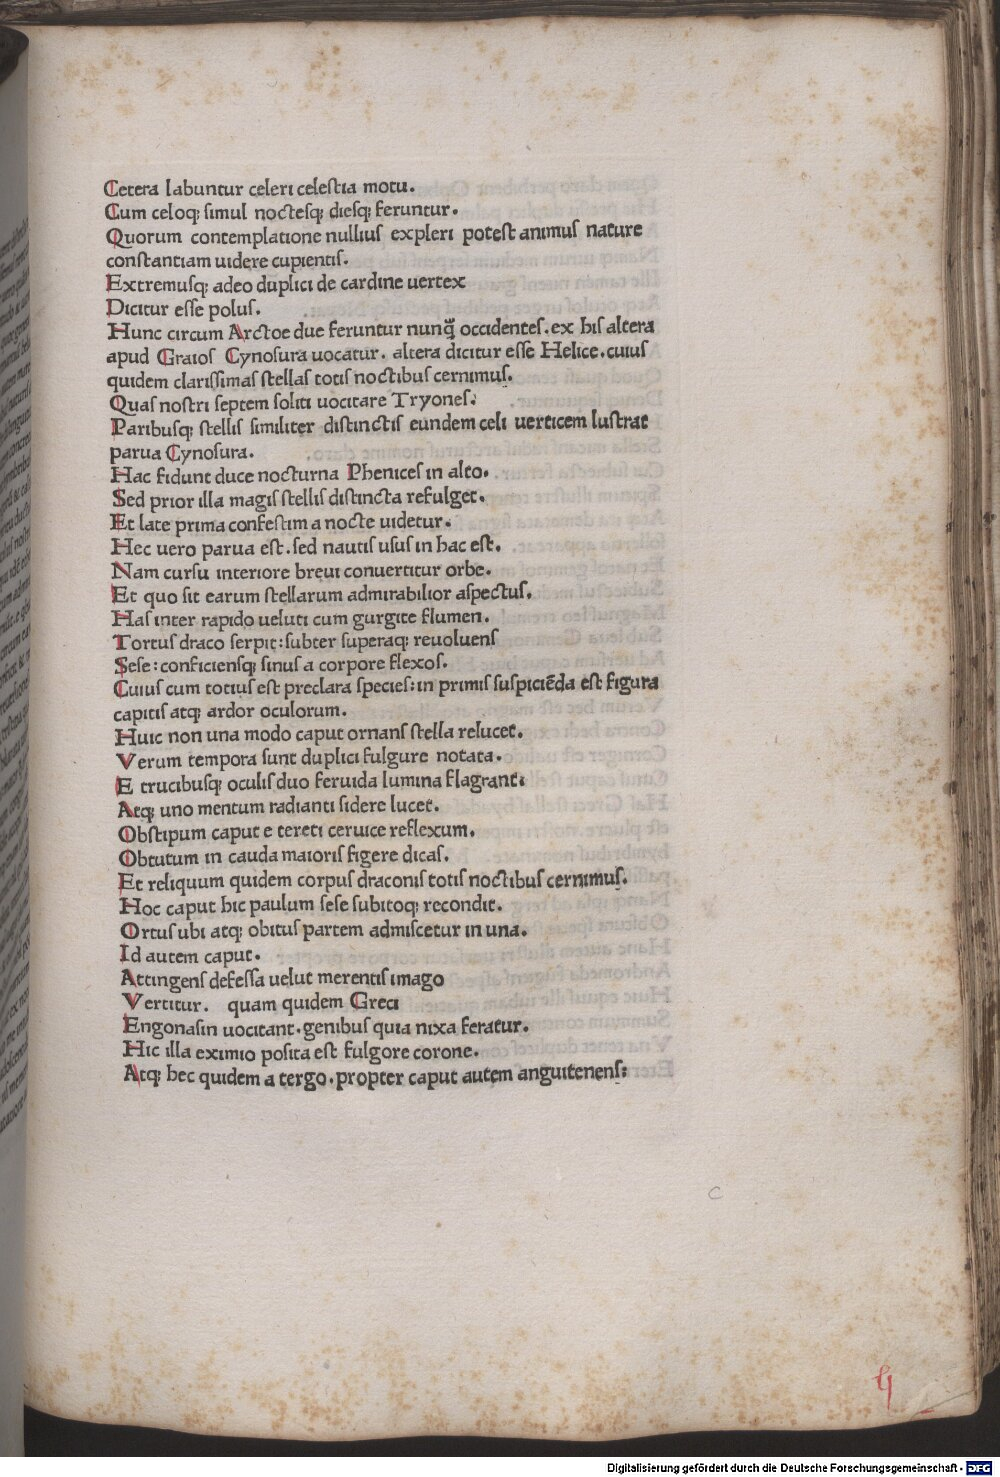 Cetera labuntur celeri celestia motu.
Cum celoqꝫ simul noctesqꝫ diesqꝫ feruntur.
Quorum contemplatione nullius expleri potest animus nature
constantiam uidere cupientis.
Extremusqꝫ adeo duplici de cardine uertex
Dicitur esse polus.
Hunc circum Arctoe due feruntur nunq̃ occidentes. ex his altera
apud Graios Cynosura uocatur. altera dicitur esse Helice. cuius
quidem clarissimas stellas totis noctibus cernimus.
Quas nostri septem soliti uocitare Tryones:
Paribusqꝫ stellis similiter distinctis eundem celi uerticem lustrat
parua Cynosura.
Hac fidunt duce nocturna Phenices in alto.
Sed prior illa magis stellis distincta refulget.
Et late prima confestim a nocte uidetur.
Hec uero parua est. sed nautis usus in hac est.
Nam cursu interiore breui conuertitur orbe.
Et quo sit earum stellarum admirabilior aspectus.
Has inter rapido ueluti cum gurgite flumen.
Tortus draco serpit: subter superaqꝫ reuoluens
Sese: conficiensqꝫ sinus a corpore flexos.
Cuius cum totius est preclara species: in primis suspiciēda est figura
capitis atqꝫ ardor oculorum.
Huic non una modo caput ornans stella relucet.
Verum tempora sunt duplici fulgure notata.
E trucibusqꝫ oculis duo feruida lumina flagrant:
Atqꝫ uno mentum radianti sidere lucet.
Obstipum caput e tereti ceruice reflexum.
Obtutum in cauda maioris figere dicas.
Et reliquum quidem corpus draconis totis noctibus cernimus.
Hoc caput hic paulum sese subitoqꝫ recondit.
Ortus ubi atqꝫ obitus partem admiscetur in una.
Id autem caput.
Attingens defessa uelut merentis imago
Vertitur. quam quidem Greci
Engonasin uocitant. genibus quia nixa feratur.
Hic illa eximio posita est fulgore corone.
Atqꝫ hec quidem a tergo. propter caput autem anguitenens:
c
Digitalisierung gefördert durch die Deutsche Forschungsgemeinschaft - DFG